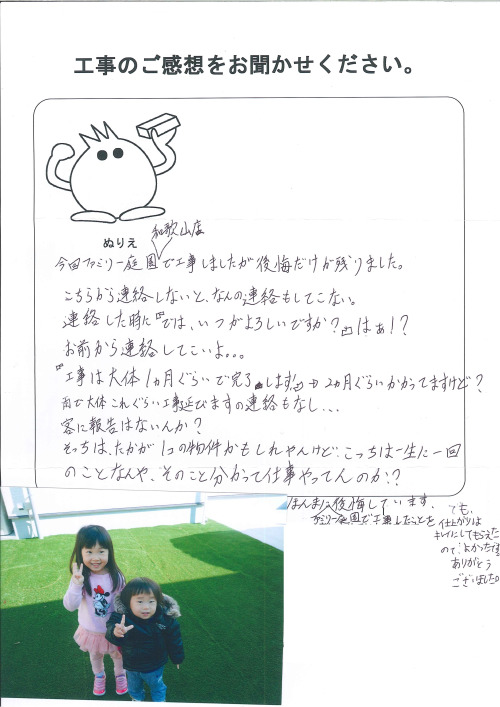 工事のご感想をお聞かせください。
ぬりえ
和歌山店
今回ファミリー庭園で工事しましたが後悔だけが残りました。
こちらから連絡しないと、なんの連絡もしてこない。
連絡した時に『では、いつがよろしいですか?』はぁ!?
お前から連絡してこいよ。。。
『工事は大体1ヵ月ぐらいで完了します!』→2ヵ月ぐらいかかってますけど?
雨で大体これぐらい工事延びますの連絡もなし...
客に報告はないんか?
そっちは、たかが1コの物件かもしれやんけど、こっちは一生に一回
のことなんや、そのこと分かって仕事やってんのか??
ほんまに後悔しています。
ファミリー庭園で工事したことを
でも、
仕上がりは
キレイにしてもらえた
ので、よかったです
ありがとう
ございました。